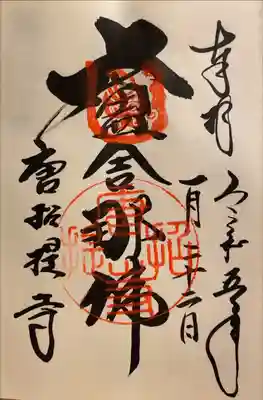 奉拝
令和五年
一月二十二日
盧舎那佛
唐招提寺